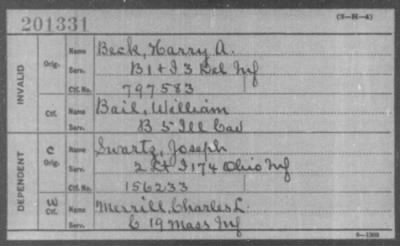 201331
(3-H-A)
INVALID
Orig.
Name Beck, Harry A.
Serv. B 1 & I 3 Del Inf
Ctf. No. 797583
Ctf.
Name Bail, William
Serv. B 5 Ill Cav
DEPENDENT
C
Orig.
Name Swartz, Joseph
Serv. 2 Lt I 174 Ohio Inf
Ctf. No. 156233
W
Ctf.
Name Merrill, Charles L.
Serv. C 19 Mass Inf